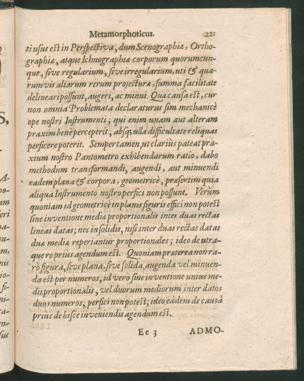 Metamorphoticus. 221
ti usus est in Perspectiva, dum Scenographiæ, Ortho-
graphiæ, atque Ichnographiæ corporum quorumcun-
que, sive regularium, sive irregularium, uti & qua-
rumvis aliarum rerum projecturæ, summa facilitate
delineari possunt, augeri, ac minui. Quæ causa est, cur
non omnia Problemata declaraturus sim mechanicè
ope nostri Instrumenti; qui enim unam aut alteram
praxim benè perceperit, absq́; ulla difficultate reliquas
perficere poterit. Semper tamen, ut clariùs pateat pra-
xium nostro Pantometro exhibendarum ratio, dabo
methodum transformandi, augendi, aut minuendi
eadem plana & corpora, geometricè, præsertim quia
aliqua Instrumento nostro perfici non possunt. Verùm
quoniam id geometricè in planis figuris effici non potest
sine inventione mediæ proportionalis inter duas rectas
lineas datas; nec in solidis, nisi inter duas rectas datas
duæ mediæ reperiantur proportionales; ideo de utra-
que re prius agendum est. Quoniam præterea non ra-
rò figura, sive plana, sive solida, augenda vel minuen-
da est per numeros, id verò sine inventione unius me-
dis proportionalis, vel duorum mediorum inter datos
duos numeros, perfici non potest; ideo eadem de causa
prius de hisce inveniendis agendum est.
Ee 3 ADMO-